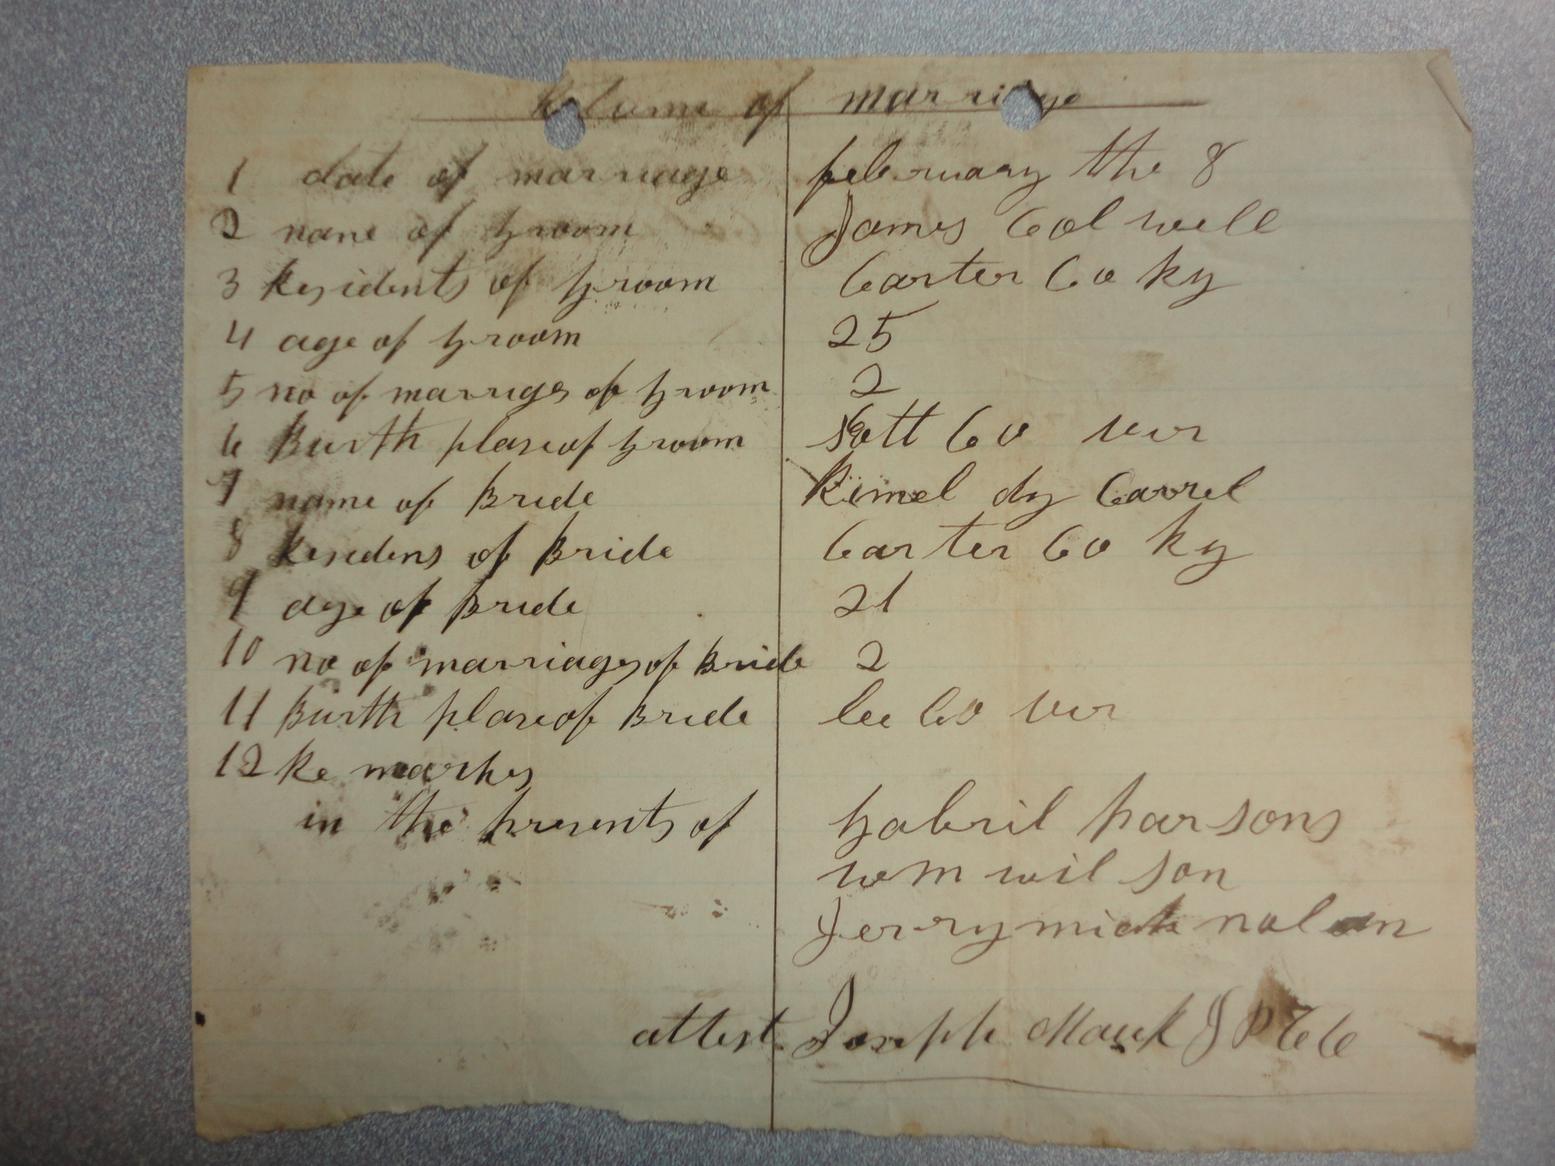 of marriage
1 date of marriage february the 8
2 name of groom James Colwell
3 Residents of groom Carter Co ky
4 age of groom 25
5 no of marriges of groom 2
6 Burth plase of groom Co vir
7 name of Bride Carrel
8 Residens of Bride Carter Co ky
9 age of Bride 21
10 no of marriages of Bride 2
11 Burth plase of Bride lee Co vir
12 Re markes
in the presents of gabril parsons
wm wilson
Jerrymiah nolan
attest Joseph Mauk J P C C